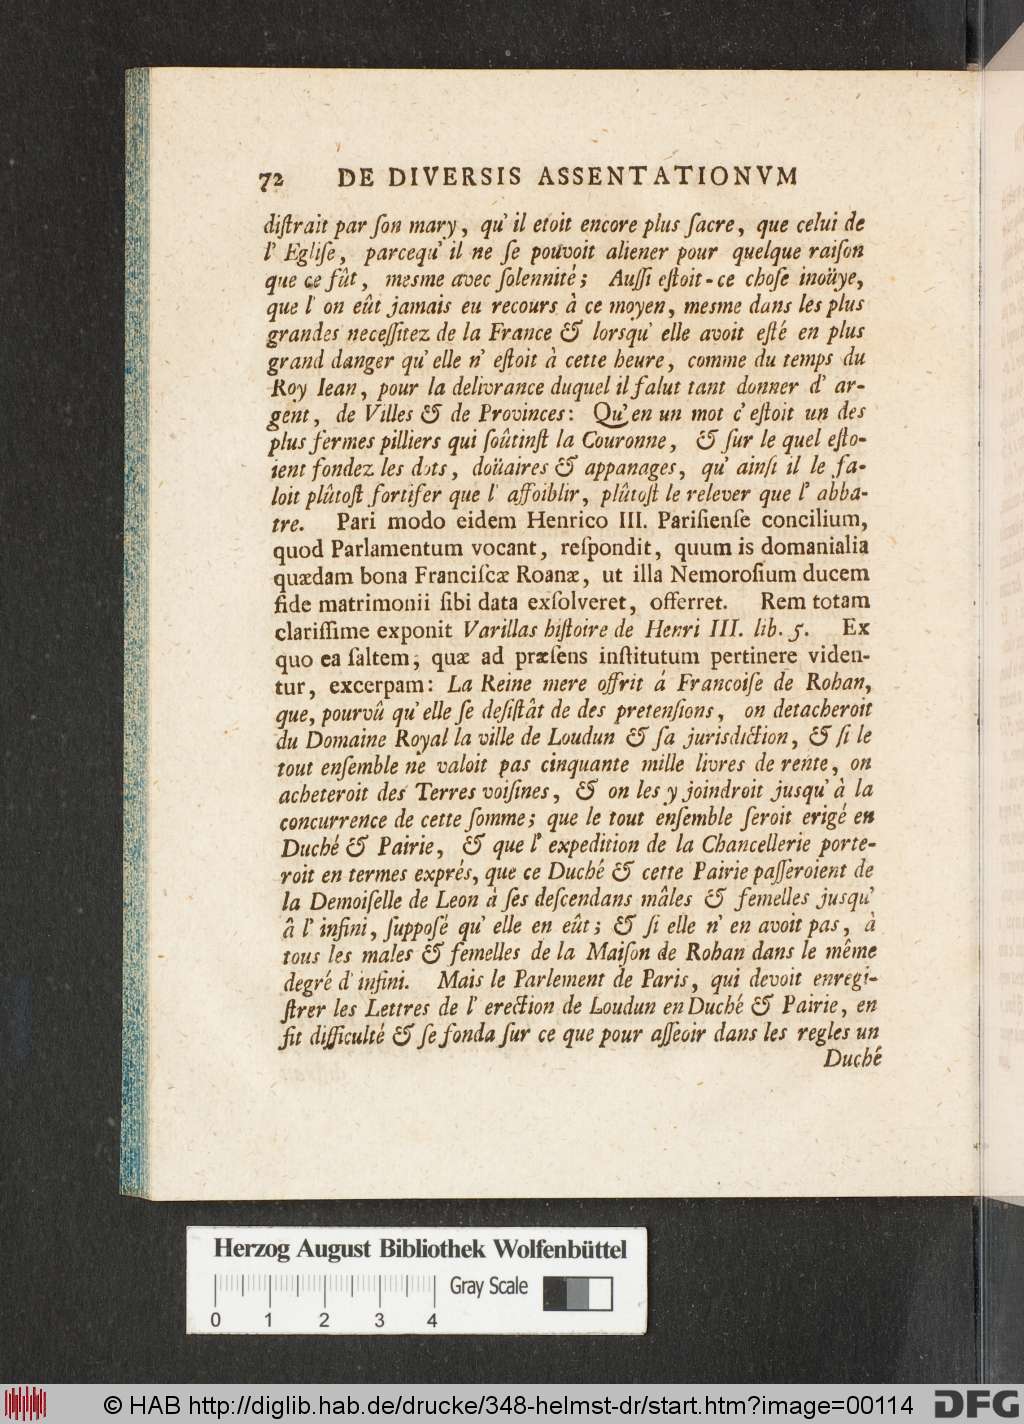 72 DE DIVERSIS ASSENTATIONVM
diſtrait par ſon mary, qu' il etoit encore plus ſacre, que celui de
l' Egliſe, parcequ' il ne ſe pouvoit aliener pour quelque raiſon
que ce fût, mesme avec ſolennité; Auſſi eſtoit-ce choſe inoüye,
que l' on eût jamais eu recours à ce moyen, mesme dans les plus
grandes neceſſitez de la France & lorsqu' elle avoit eſté en plus
grand danger qu' elle n' eſtoit à cette heure, comme du temps du
Roy Iean, pour la delivrance duquel il falut tant donner d' ar-
gent, de Villes & de Provinces: Qu' en un mot c' eſtoit un des
plus fermes pilliers qui ſoûtinſt la Couronne, & ſur le quel eſto-
ient fondez les dots, doüaires & appanages, qu' ainſi il le fa-
loit plûtoſt fortifer que l' affoiblir, plûtoſt le relever que l' abba-
tre. Pari modo eidem Henrico III. Pariſienſe concilium,
quod Parlamentum vocant, reſpondit, quum is domanialia
quædam bona Franciſcæ Roanæ, ut illa Nemoroſium ducem
fide matrimonii ſibi data exſolveret, offerret. Rem totam
clariſſime exponit Varillas hiſtoire de Henri III. lib. 5. Ex
quo ea ſaltem, quæ ad præſens inſtitutum pertinere viden-
tur, excerpam: La Reine mere offrit á Francoiſe de Rohan,
que, pourvû qu' elle ſe deſiſtât de des pretenſions, on detacheroit
du Domaine Royal la ville de Loudun & ſa jurisdiction, & ſi le
tout enſemble ne valoit pas cinquante mille livres de rente, on
acheteroit des Terres voiſines, & on les y joindroit jusqu' à la
concurrence de cette ſomme; que le tout enſemble ſeroit erigé en
Duché & Pairie, & que l' expedition de la Chancellerie porte-
roit en termes exprés, que ce Duché & cette Pairie paſſeroient de
la Demoiſelle de Leon à ſes deſcendans mâles & femelles jusqu'
â l' infini, ſuppoſé qu' elle en eût; & ſi elle n' en avoit pas, à
tous les males & femelles de la Maiſon de Rohan dans le même
degré d' infini. Mais le Parlement de Paris, qui devoit enregi-
ſtrer les Lettres de l' erection de Loudun en Duché & Pairie, en
fit difficulté & ſe fonda ſur ce que pour aſſeoir dans les regles un
Duché
Herzog August Bibliothek Wolfenbüttel
Gray Scale
0 1 2 3 4
© HAB http://diglib.hab.de/drucke/348-helmst-dr/start.htm?image=00114
DFG